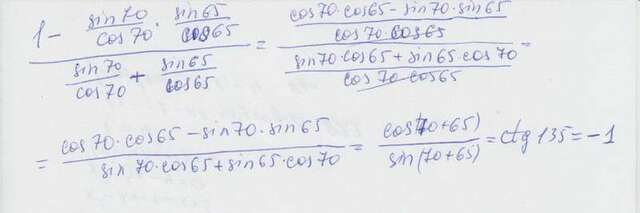 1 - sin70/cos70 · sin65/cos65 / sin70/cos70 + sin65/cos65 = cos70·cos65 - sin70·sin65/cos70·cos65 / sin70·cos65 + sin65·cos70/cos70·cos65 =
= cos70·cos65 - sin70·sin65 / sin70·cos65 + sin65·cos70 = cos(70+65) / sin(70+65) = ctg135 = -1